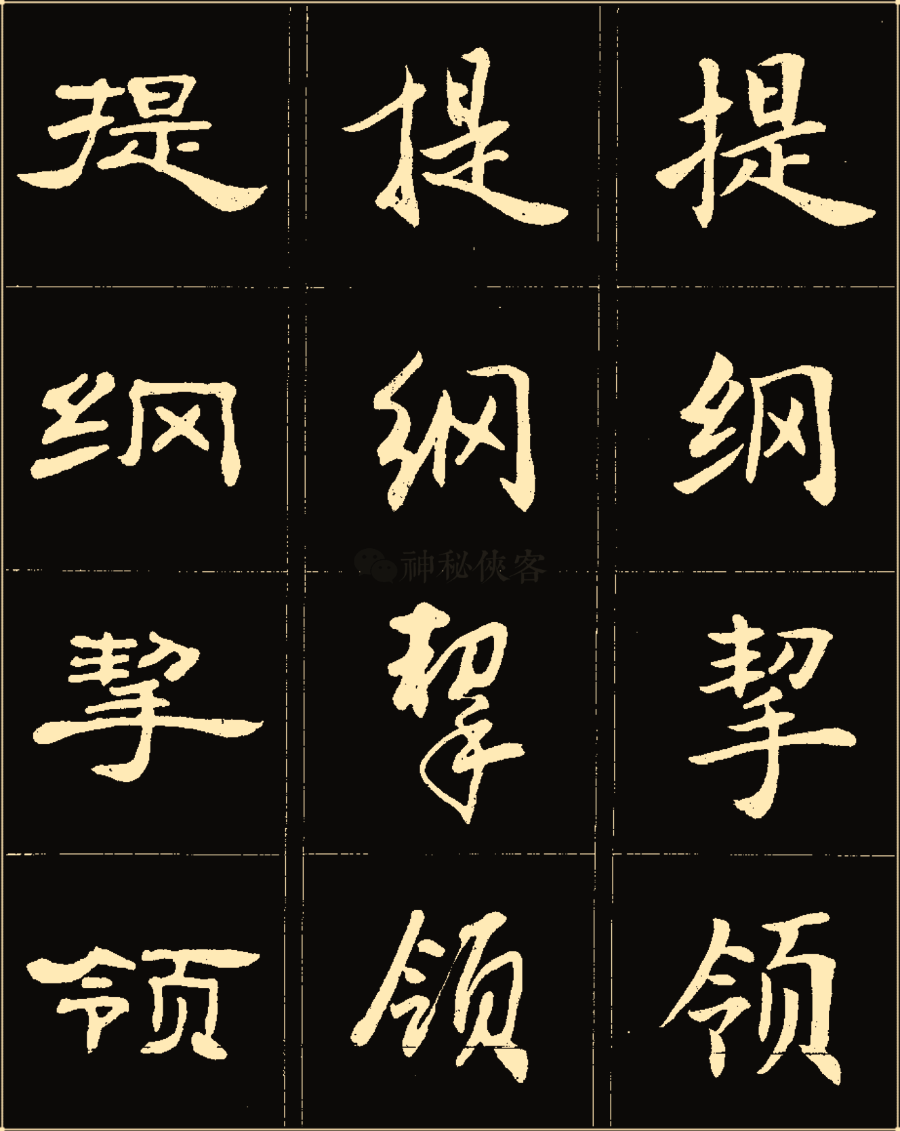 提 提 提
纲 纲 纲
神秘俠客
挈 挈 挈
领 领 领